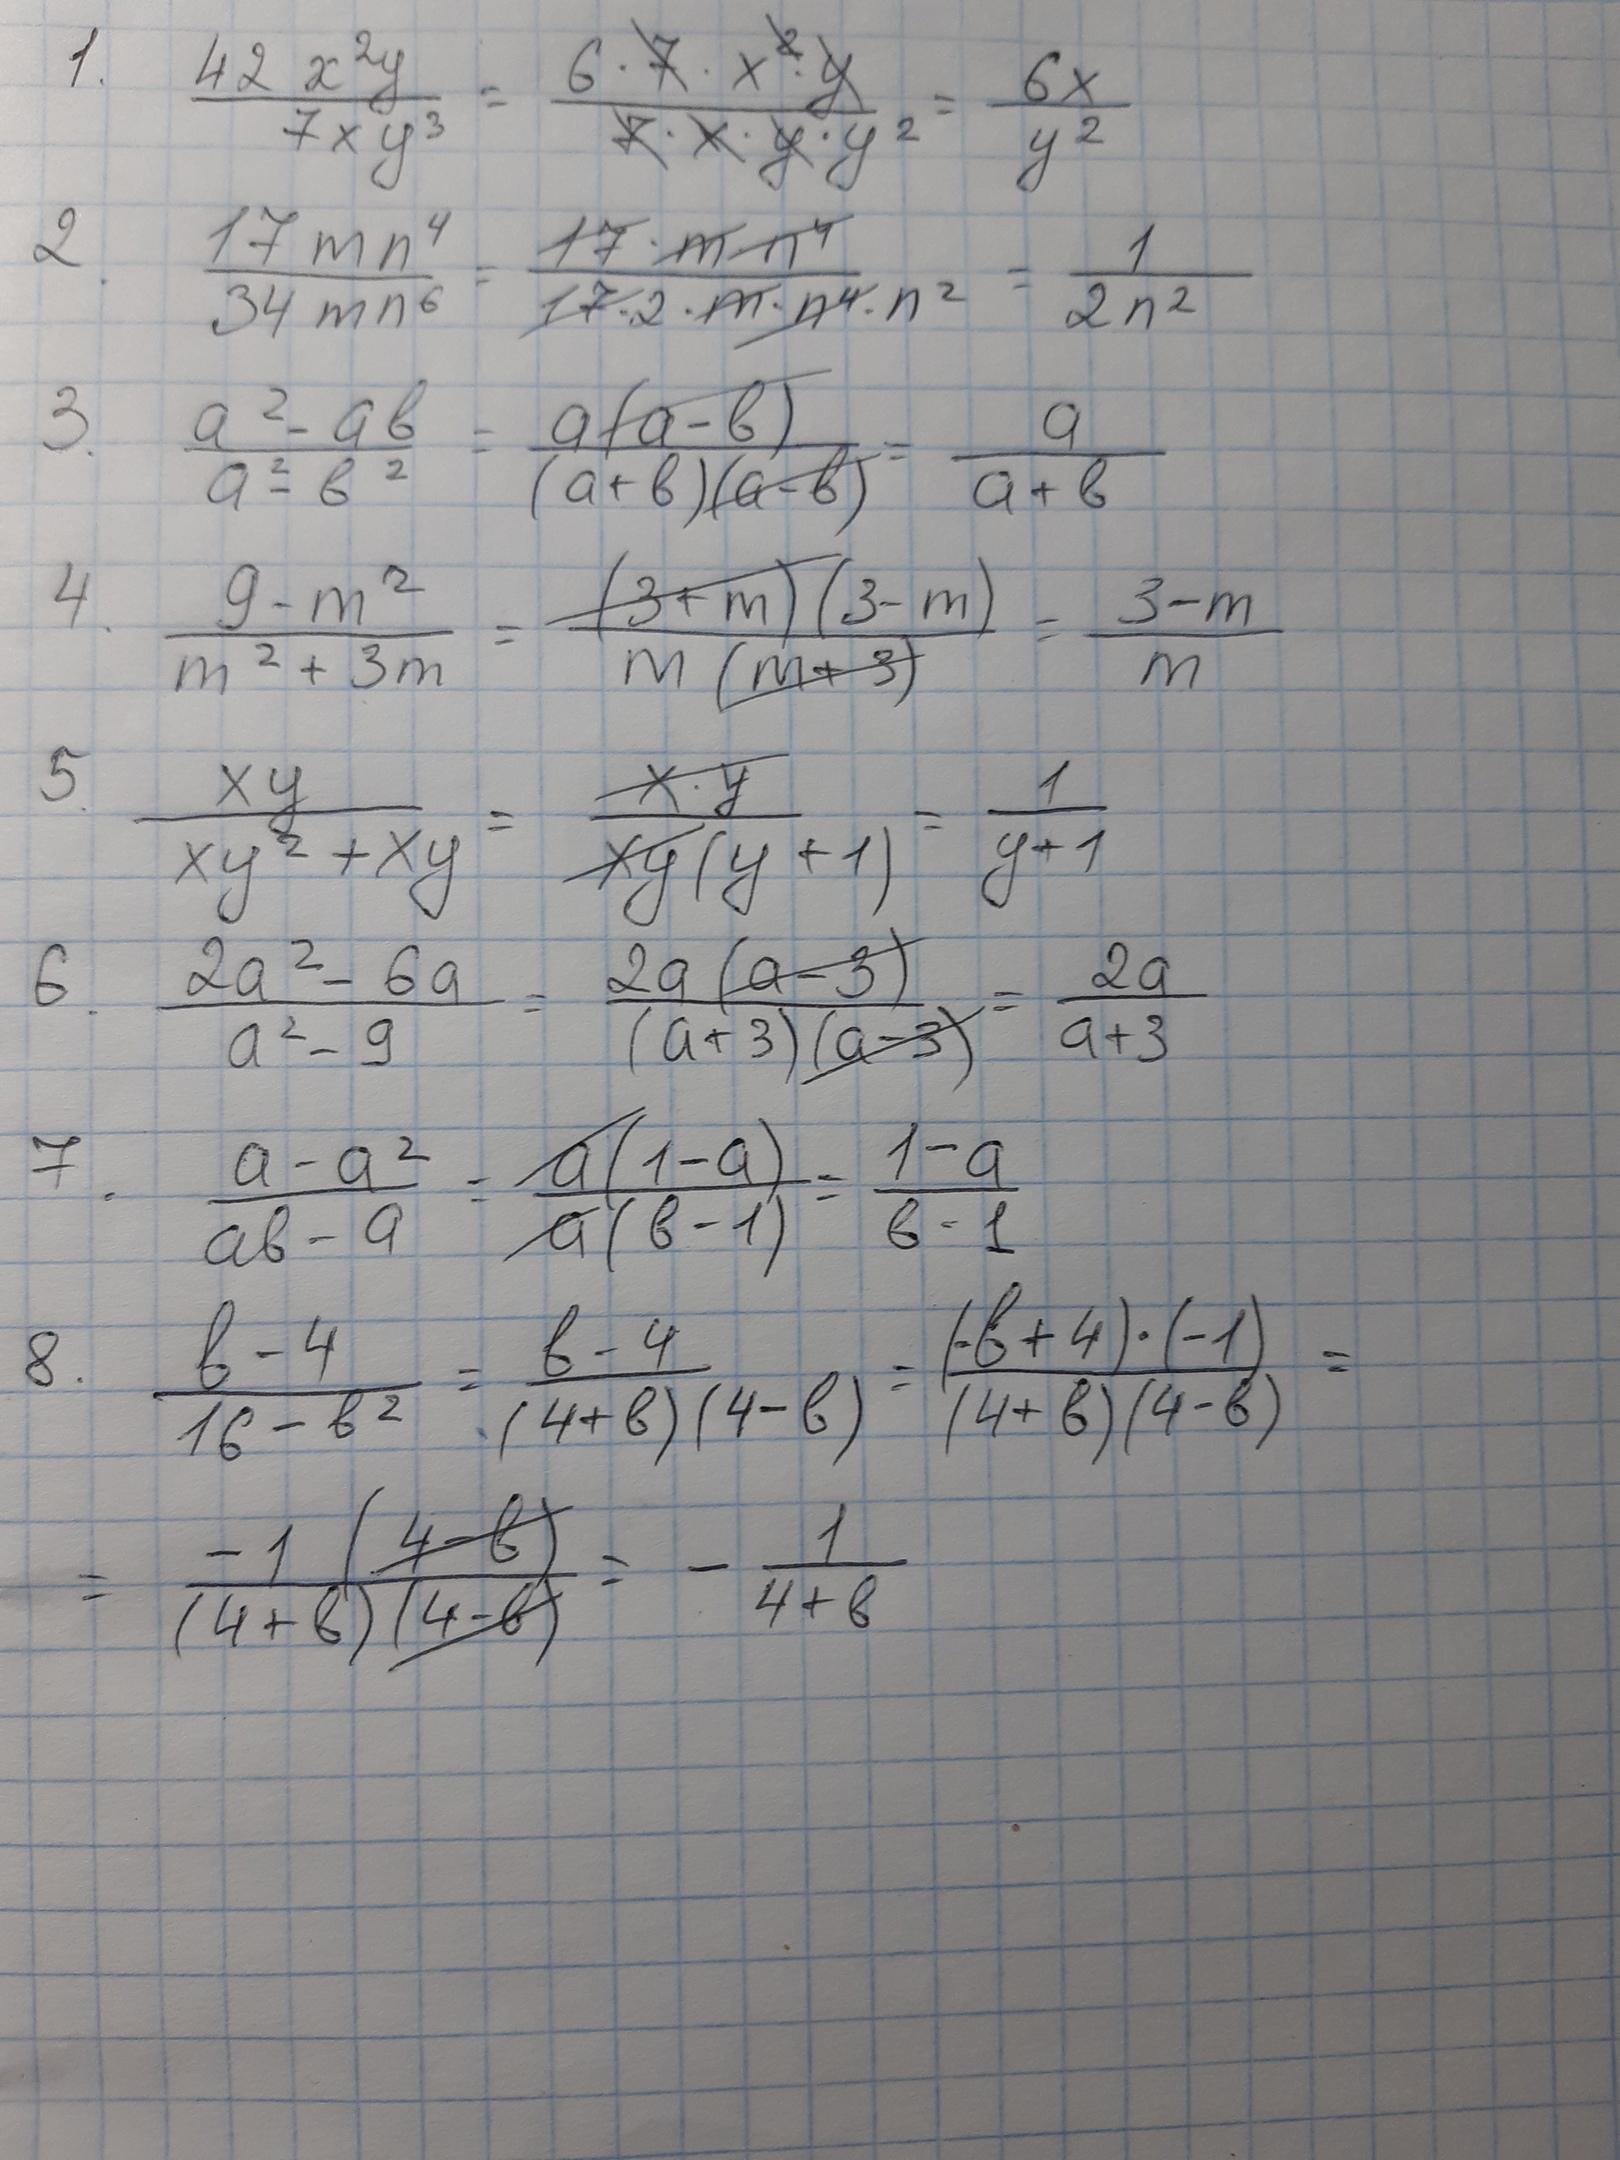 1. 42 x²y / 7xy³ = 6 · 7 · x² · y / 7 · x · y · y² = 6x / y²
2. 17mn⁴ / 34mn⁶ = 17 · m · n⁴ / 17 · 2 · m · n⁴ · n² = 1 / 2n²
3. a² - aв / a² - в² = a(a - в) / (a + в)(a - в) = a / a + в
4. 9 - m² / m² + 3m = (3 + m)(3 - m) / m(m + 3) = 3 - m / m
5. xy / xy² + xy = x · y / xy(y + 1) = 1 / y + 1
6. 2a² - 6a / a² - 9 = 2a(a - 3) / (a + 3)(a - 3) = 2a / a + 3
7. a - a² / aв - a = a(1 - a) / a(в - 1) = 1 - a / в - 1
8. в - 4 / 16 - в² = в - 4 / (4 + в)(4 - в) = (-в + 4) · (-1) / (4 + в)(4 - в) =
= -1(4 - в) / (4 + в)(4 - в) = - 1 / 4 + в